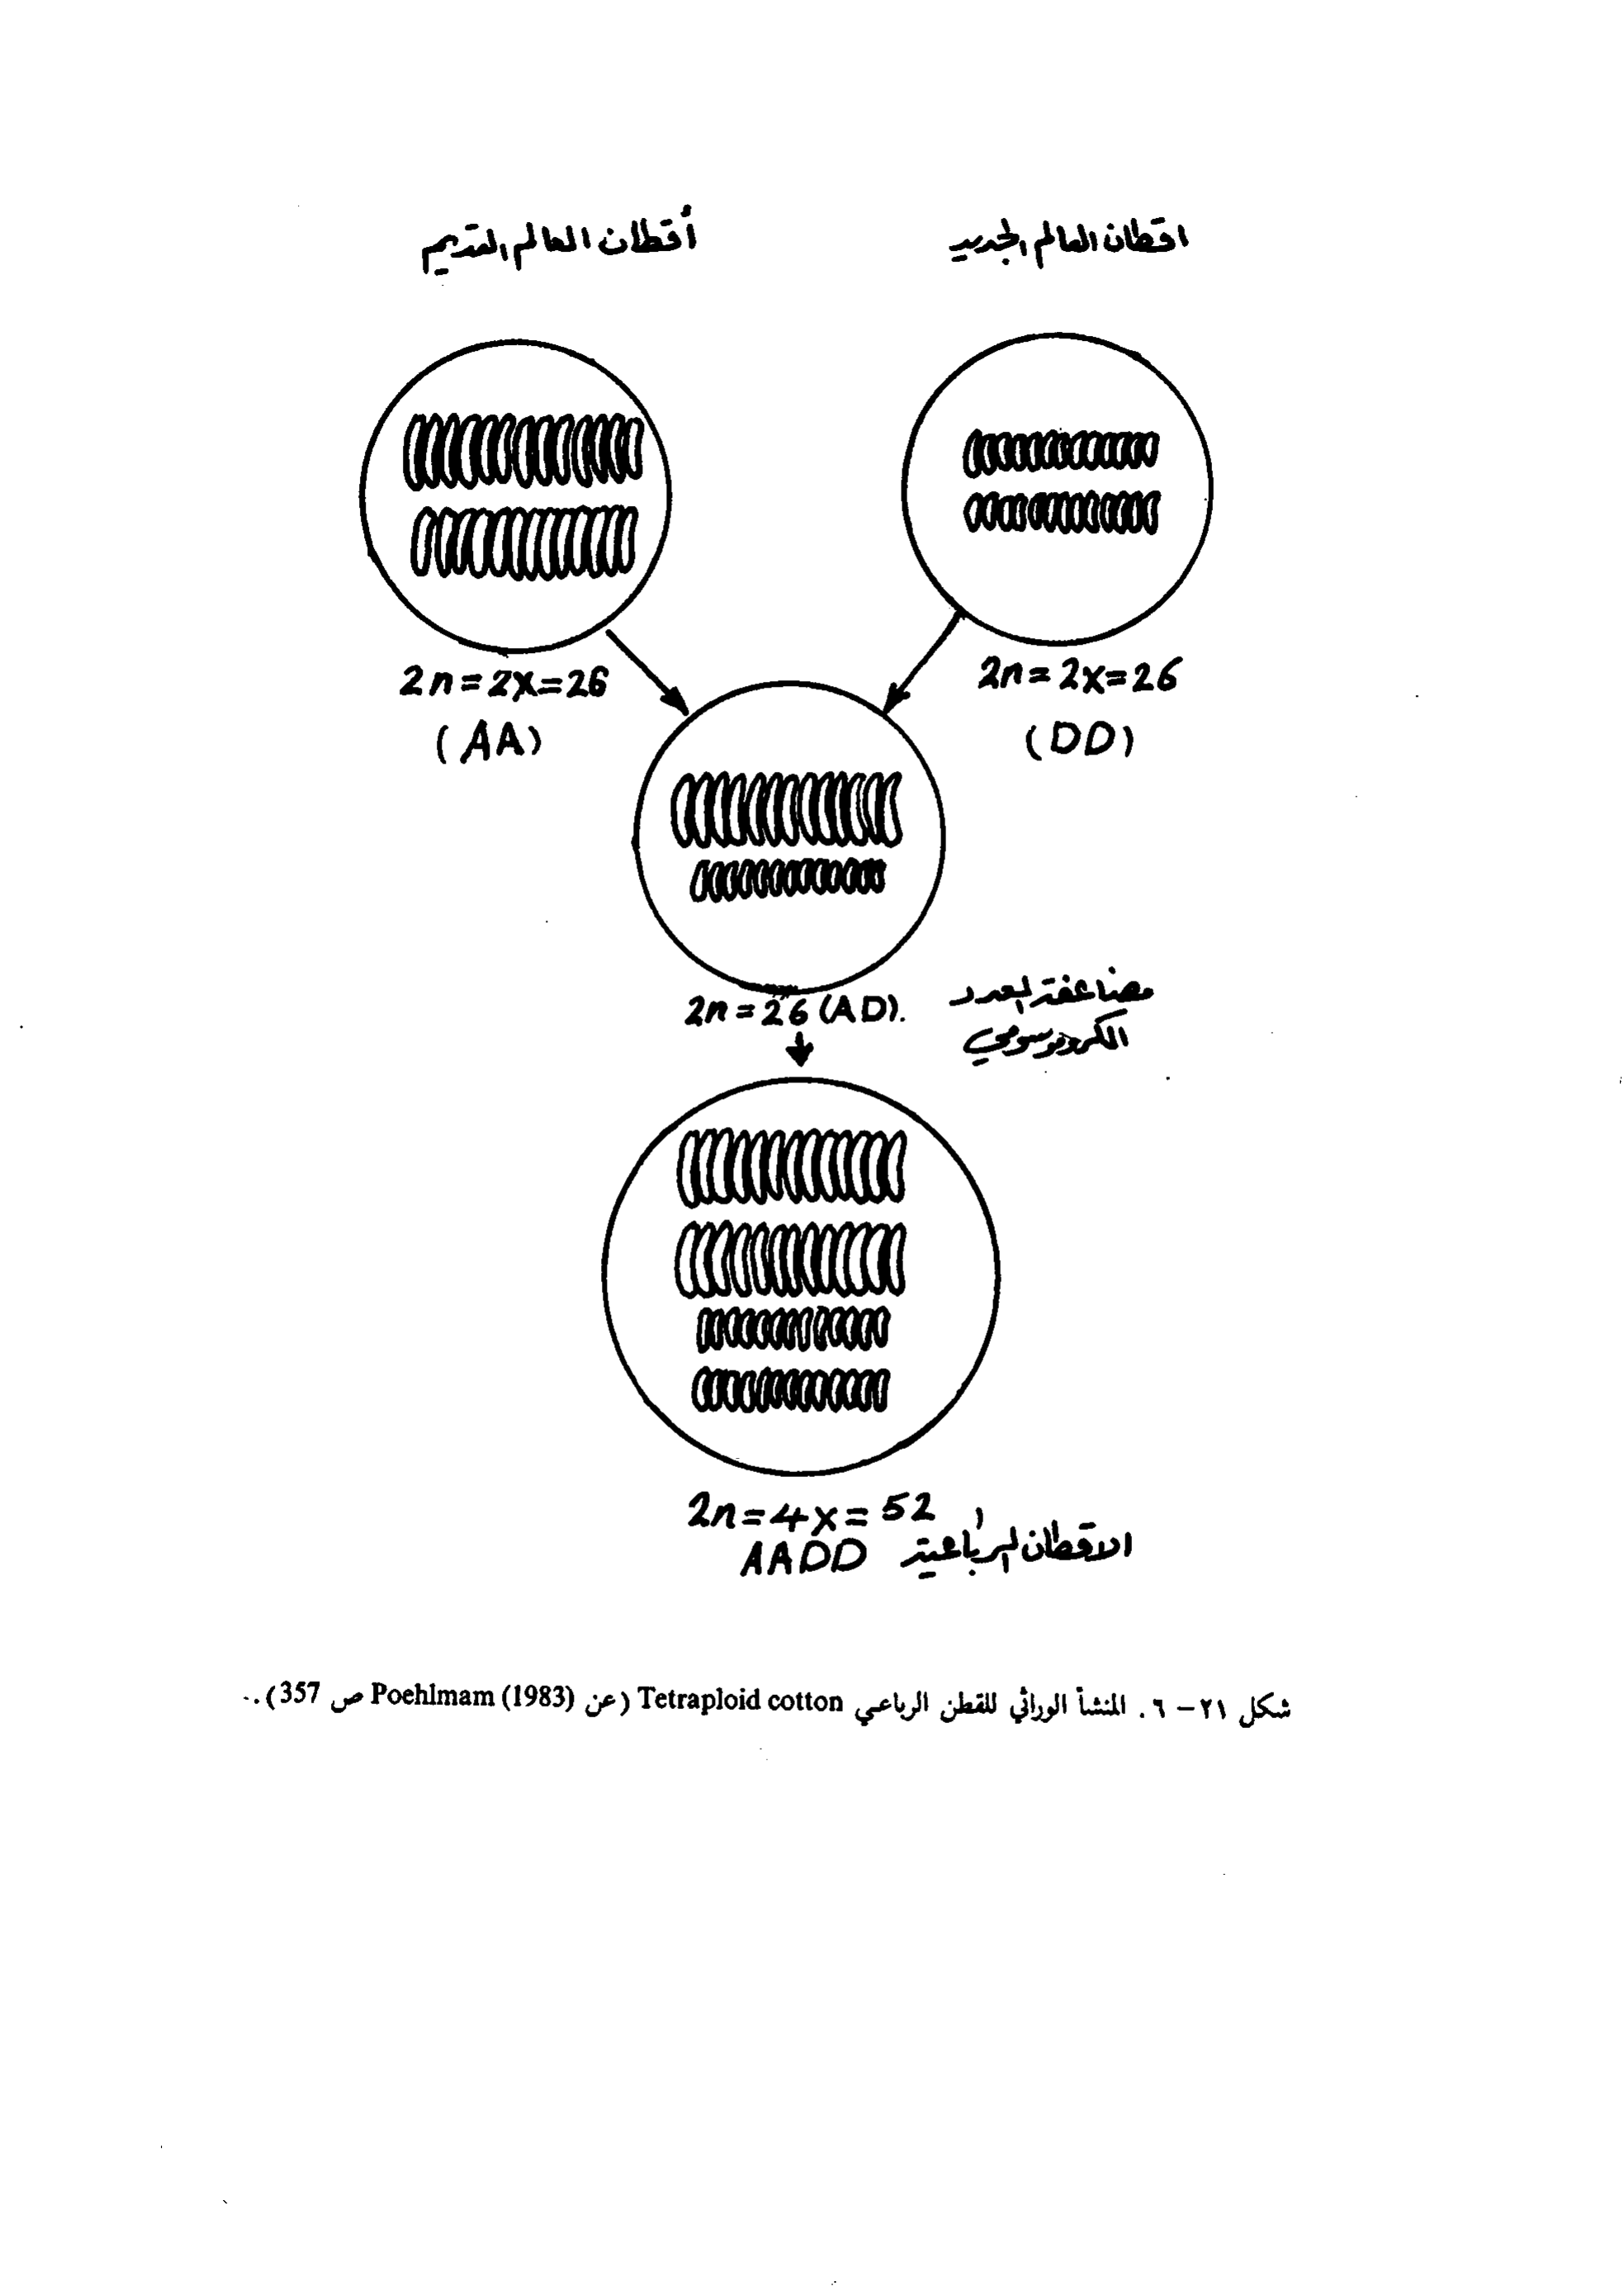 اقطان العالم الجديد
أقطان العالم القديم
2n=2x=26
(AA)
2n=2x=26
(DD)
2n=26 (AD).
مضاعفة العدد
الكروموسومي
2n=4x=52
AADD الاقطان الرباعية
شكل ٢١ – ٦. المنشأ الوراثي للقطن الرباعي Tetraploid cotton (عن Poehlmam (1983) ص 357)..